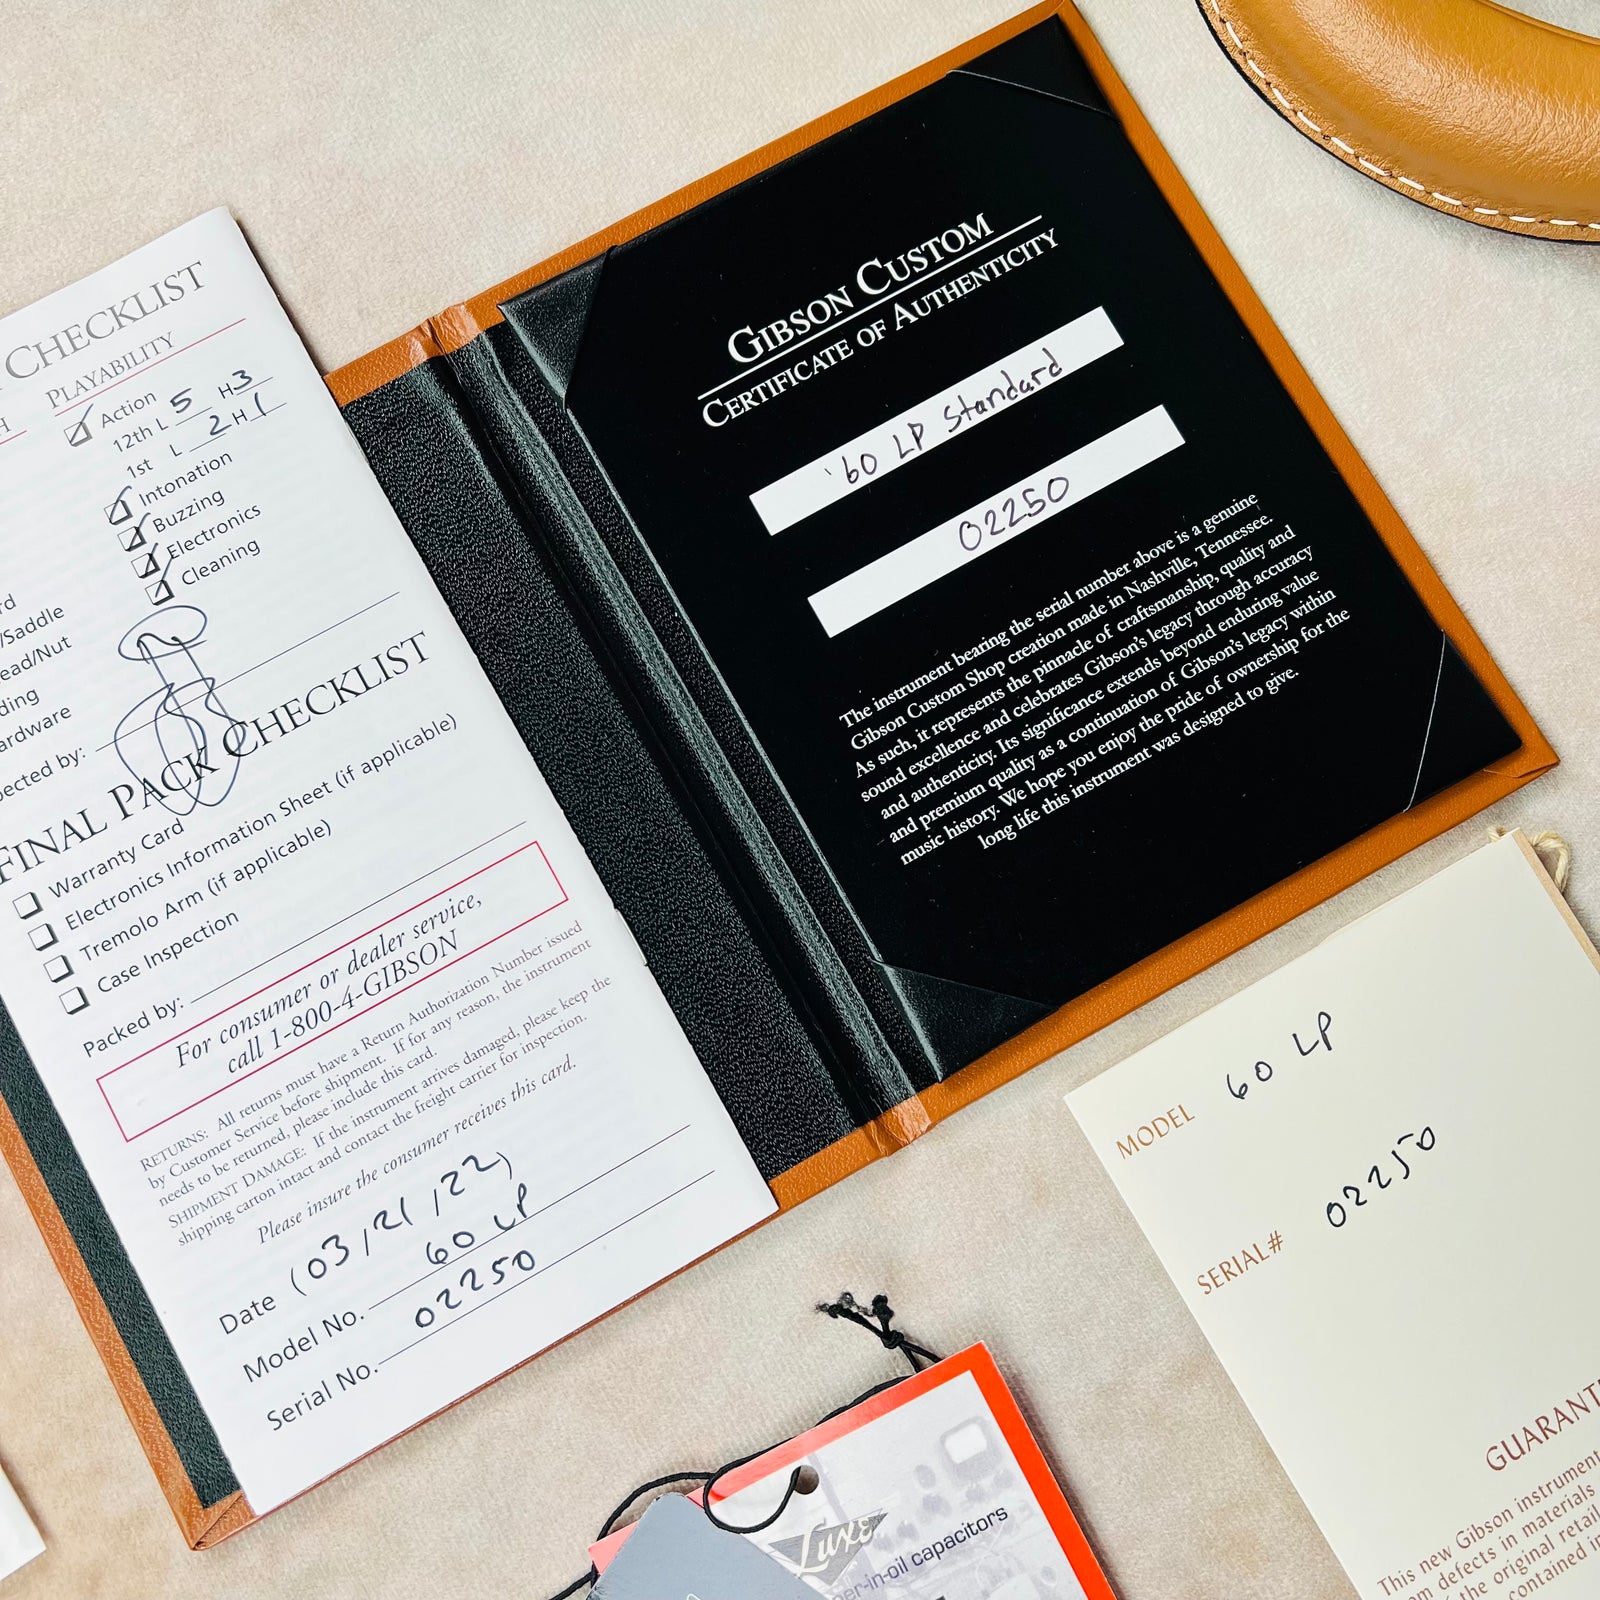 CHECKLIST
PLAYABILITY
Action
12th L 5 H3
1st L 2 H 1
Intonation
Buzzing
Electronics
Cleaning
/Saddle
ead/Nut
ding
ardware
pected by:
FINAL PACK CHECKLIST
Warranty Card
Electronics Information Sheet (if applicable)
Tremolo Arm (if applicable)
Case Inspection
Packed by:
For consumer or dealer service,
call 1-800-4-GIBSON
RETURNS: All returns must have a Return Authorization Number issued
by Customer Service before shipment. If for any reason, the instrument
needs to be returned, please include this card.
SHIPMENT DAMAGE: If the instrument arrives damaged, please keep the
shipping carton intact and contact the freight carrier for inspection.
Please insure the consumer receives this card.
Date (03/21/22)
Model No. 60 LP
Serial No. 02250
GIBSON CUSTOM
CERTIFICATE OF AUTHENTICITY
'60 LP Standard
02250
The instrument bearing the serial number above is a genuine
Gibson Custom Shop creation made in Nashville, Tennessee.
As such, it represents the pinnacle of craftsmanship, quality and
sound excellence and celebrates Gibson's legacy through accuracy
and authenticity. Its significance extends beyond enduring value
and premium quality as a continuation of Gibson's legacy within
music history. We hope you enjoy the pride of ownership for the
long life this instrument was designed to give.
MODEL 60 LP
SERIAL# 02250
GUARANT
This new Gibson instrument
om defects in materials
the original retail
contained in
Luxe
per-in-oil capacitors